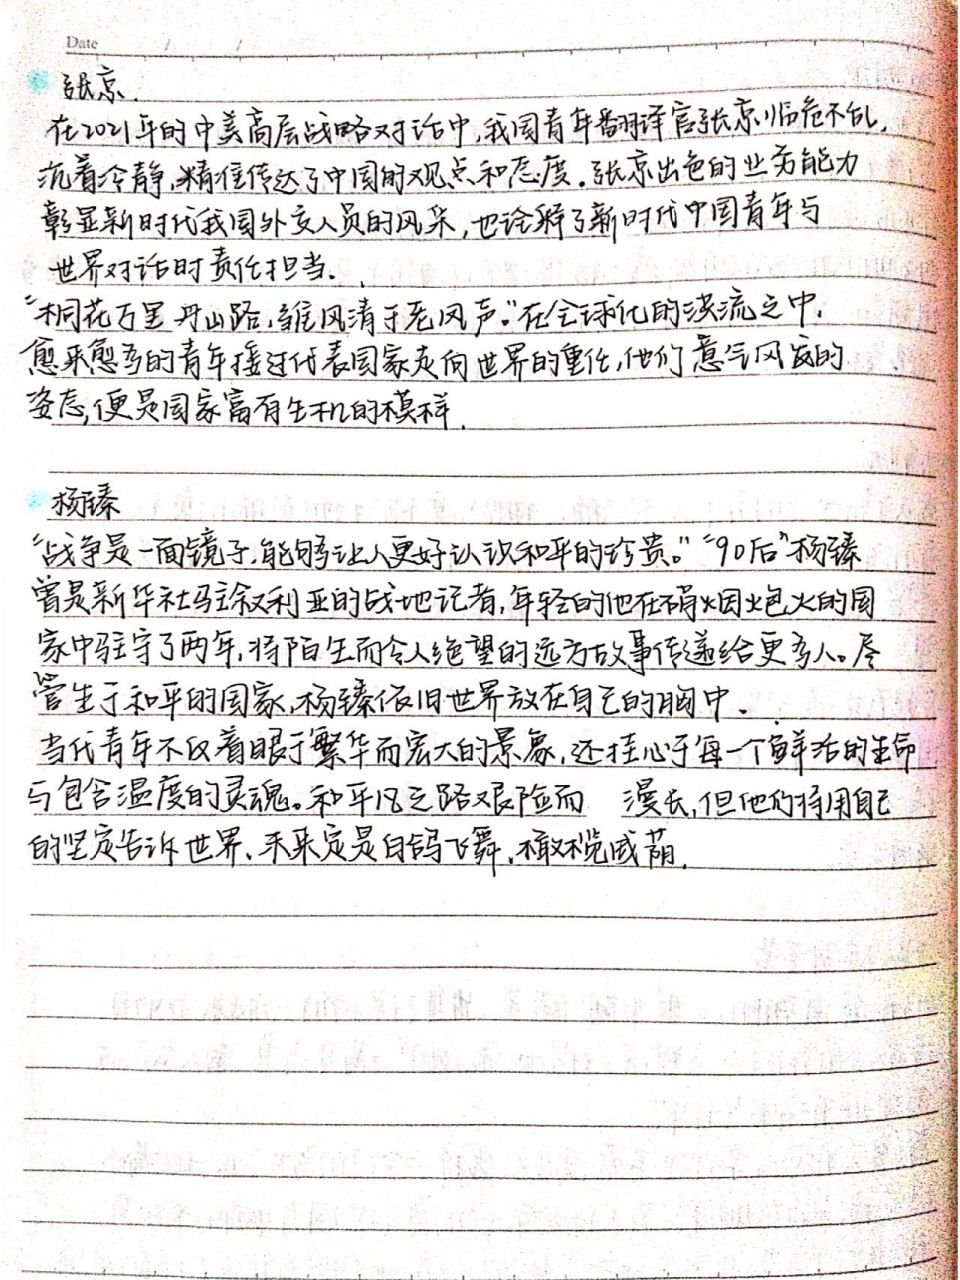 Date / /
张京.
在2021年的中美高层战略对话中,我国青年翻译官张京临危不乱,
沉着冷静,精准传达了中国的观点和态度.张京出色的业务能力
彰显新时代我国外交人员的风采,也诠释了新时代中国青年与
世界对话时责任担当.
“桐花万里丹山路,雏凤清于老凤声。”在全球化的洪流之中,
愈来愈多的青年接过代表国家走向世界的重任,他们意气风发的
姿态,便是国家富有生机的模样.
杨臻
“战争是一面镜子,能够让人更好认识和平的珍贵。”“90后”杨臻
曾是新华社驻叙利亚的战地记者,年轻的他在硝烟炮火的国
家中驻守了两年,将陌生而令人绝望的远方故事传递给更多人。尽
管生于和平的国家,杨臻依旧世界放在自己的胸中.
当代青年不仅着眼于繁华而宏大的景象,还挂心于每一个鲜活的生命
与包含温度的灵魂。和平之路艰险而 漫长,但他们将用自己
的坚定告诉世界,未来定是白鸽飞舞,橄榄成荫.